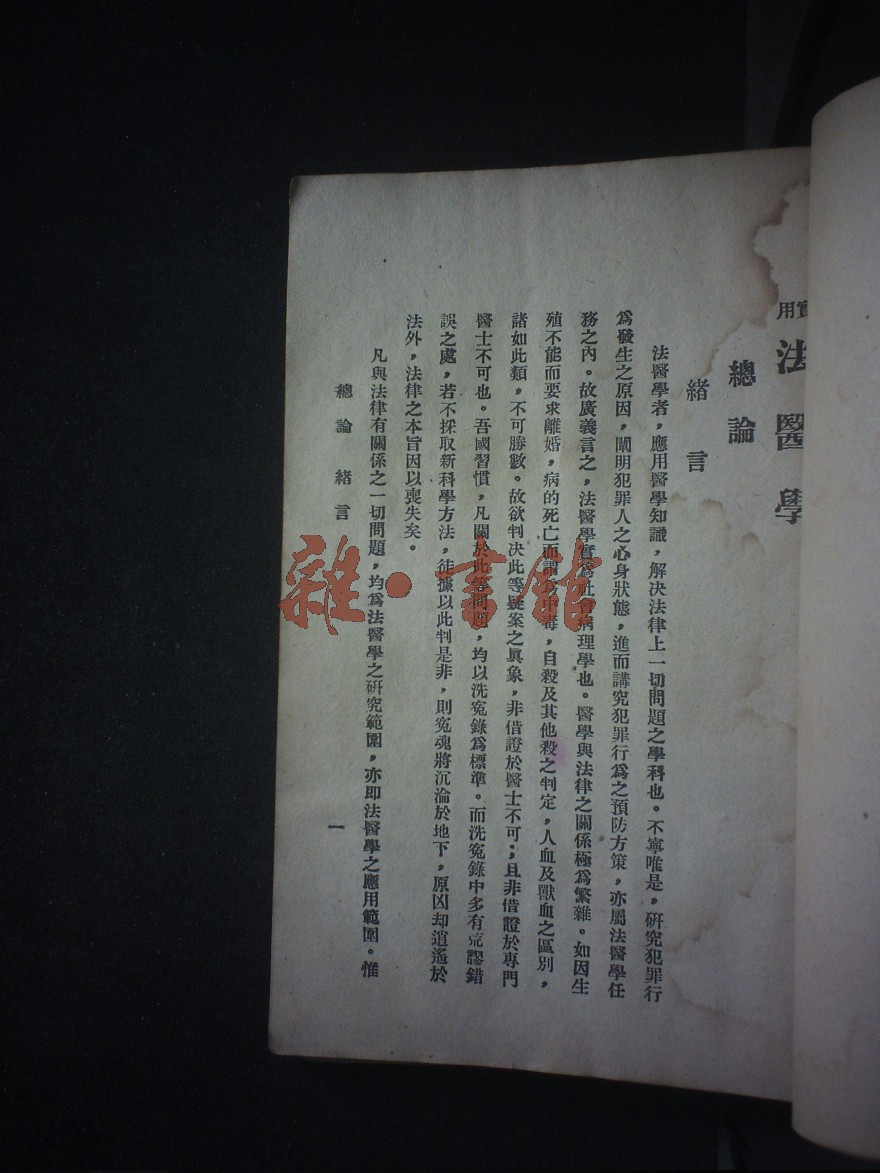 實用
法醫學
總論
緒言
法醫學者，應用醫學知識，解決法律上一切問題之學科也。不寧唯是，研究犯罪行
為發生之原因，闡明犯罪人之心身狀態，進而講究犯罪行為之預防方策，亦屬法醫學任
務之內。故廣義言之，法醫學實為社會病理學也。醫學與法律之關係極為繁雜。如因生
殖不能而要求離婚，病的死亡而謂為中毒，自殺及其他殺之判定，人血及獸血之區別，
諸如此類，不可勝數。故欲判決此等疑案之眞象，非借證於醫士不可；且非借證於專門
醫士不可也。吾國習慣，凡關於此等問題，均以洗寃錄為標準。而洗寃錄中多有荒謬錯
誤之處，若不採取新科學方法，徒據以此判是非，則寃魂將沉淪於地下，原凶却逍遙於
法外，法律之本旨因以喪失矣。
凡與法律有關係之一切問題，均為法醫學之研究範圍，亦即法醫學之應用範圍。惟
總論 緒言
一
雜·書館